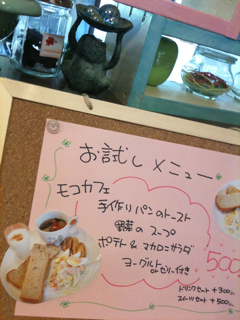 お試しメニュー
モコカフェ
手作りパンのトースト
野菜のスープ
ポテト&マカロニサラダ
ヨーグルト
orゼリー付き
500
ドリンクセット +300
スイーツセット +500